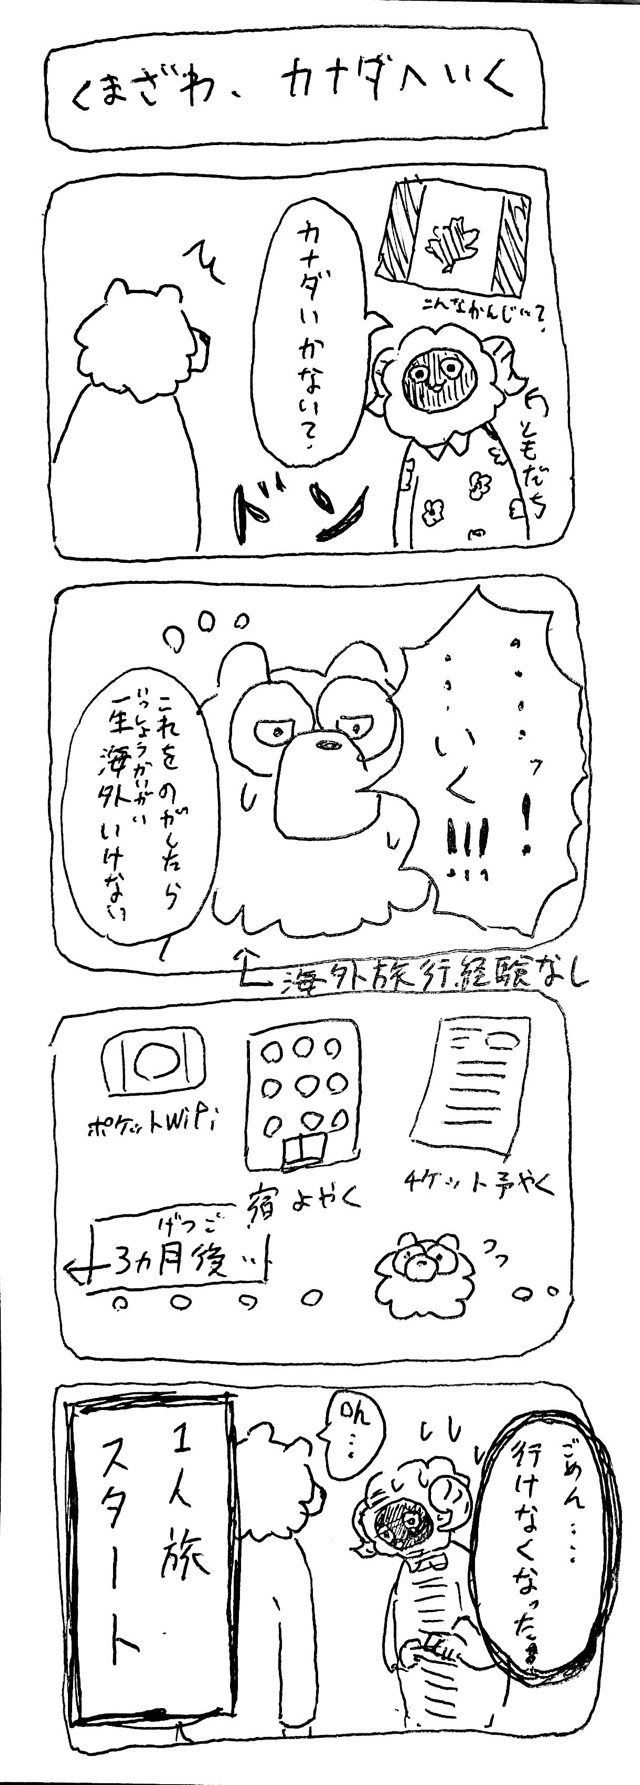 くまざわ、カナダへいく
こんなかんじ…？
カナダいかない？
ともだち
ドン
・・・・ッ！
・・・いく!!!
これをのがしたら
いっしょうかいがい
一生海外いけない
海外旅行経験なし
チケット予やく
宿よやく
ポケットWiFi
げつご
3ヵ月後…
ごめん・・・・
行けなくなった
ん…
1人旅
スタート